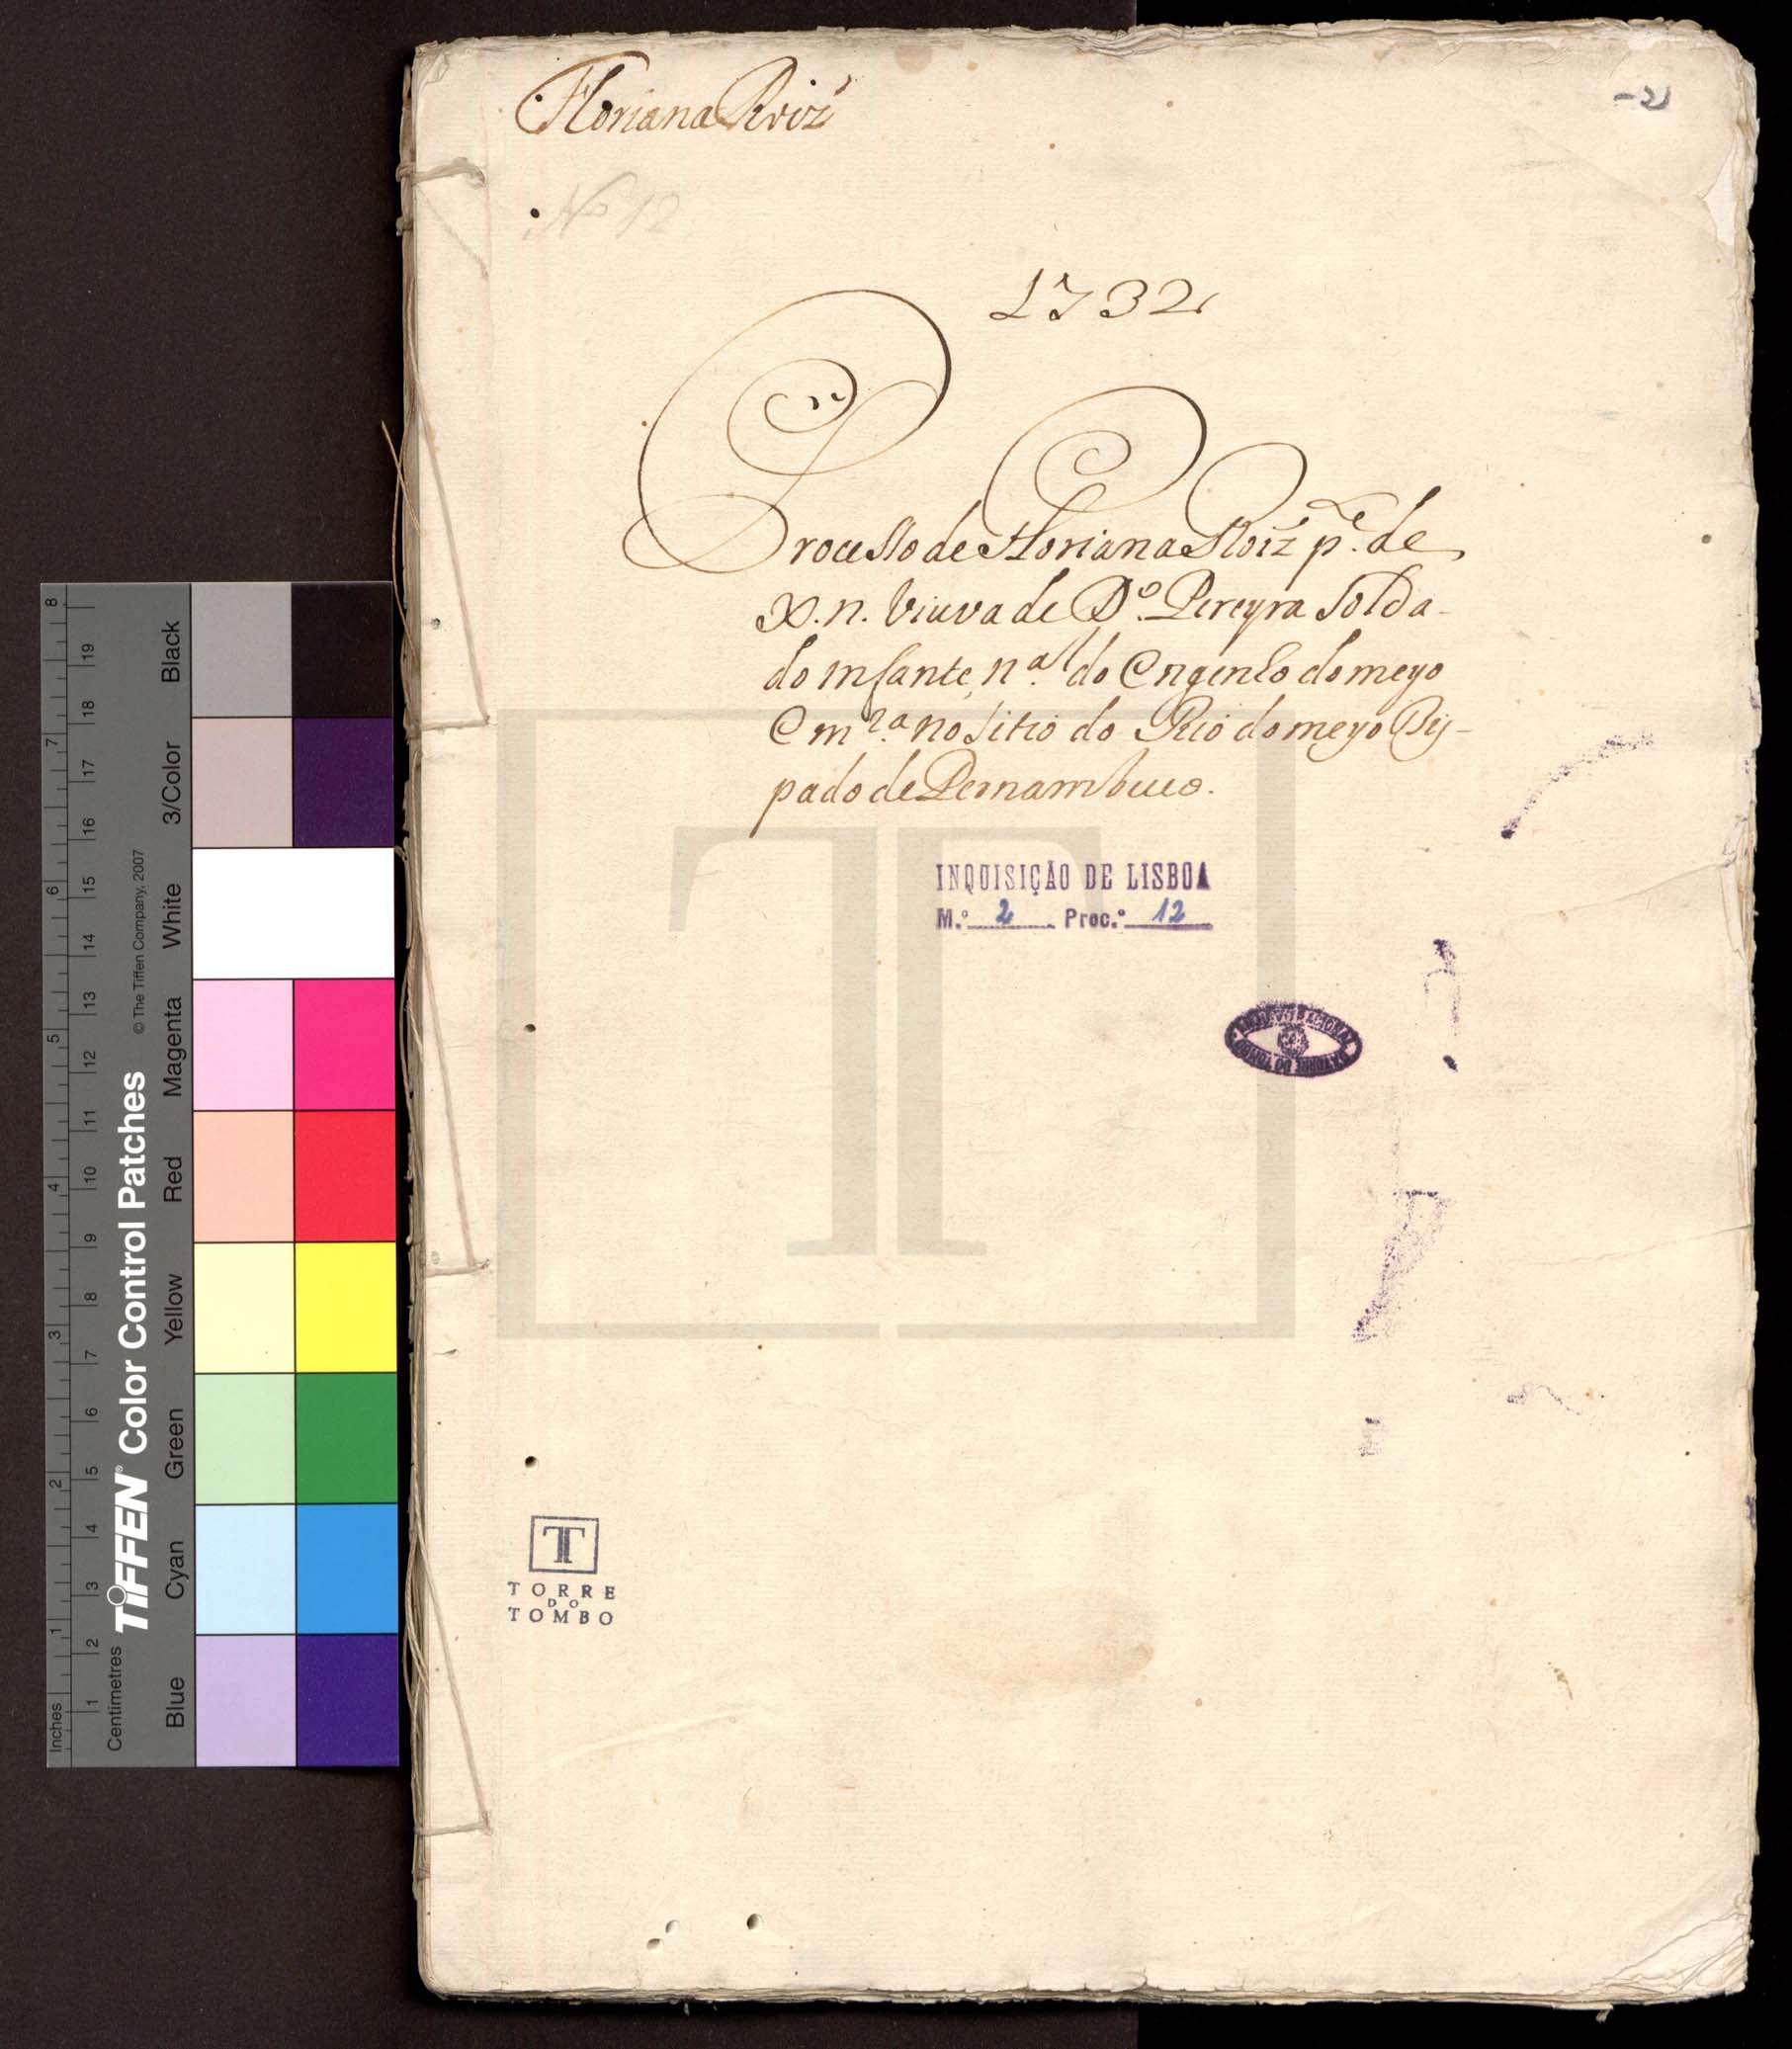 Floriana Roiz
No 12
1732
Processo de Floriana Roiz p.te de
X. n. viuva de D.º Pereyra Solda-
do infante, n.al do Engenho do meyo
e m.ra no sitio do Rio do meyo Bis-
pado de Pernambuco.
INQUISIÇÃO DE LISBOA
M.º 2 Proc.º 12
TORRE
DO
TOMBO
Inches 1 2 3 4 5 6 7 8
Centimetres 1 2 3 4 5 6 7 8 9 10 11 12 13 14 15 16 17 18 19
TIFFEN® Color Control Patches © The Tiffen Company, 2007
Blue Cyan Green Yellow Red Magenta White 3/Color Black